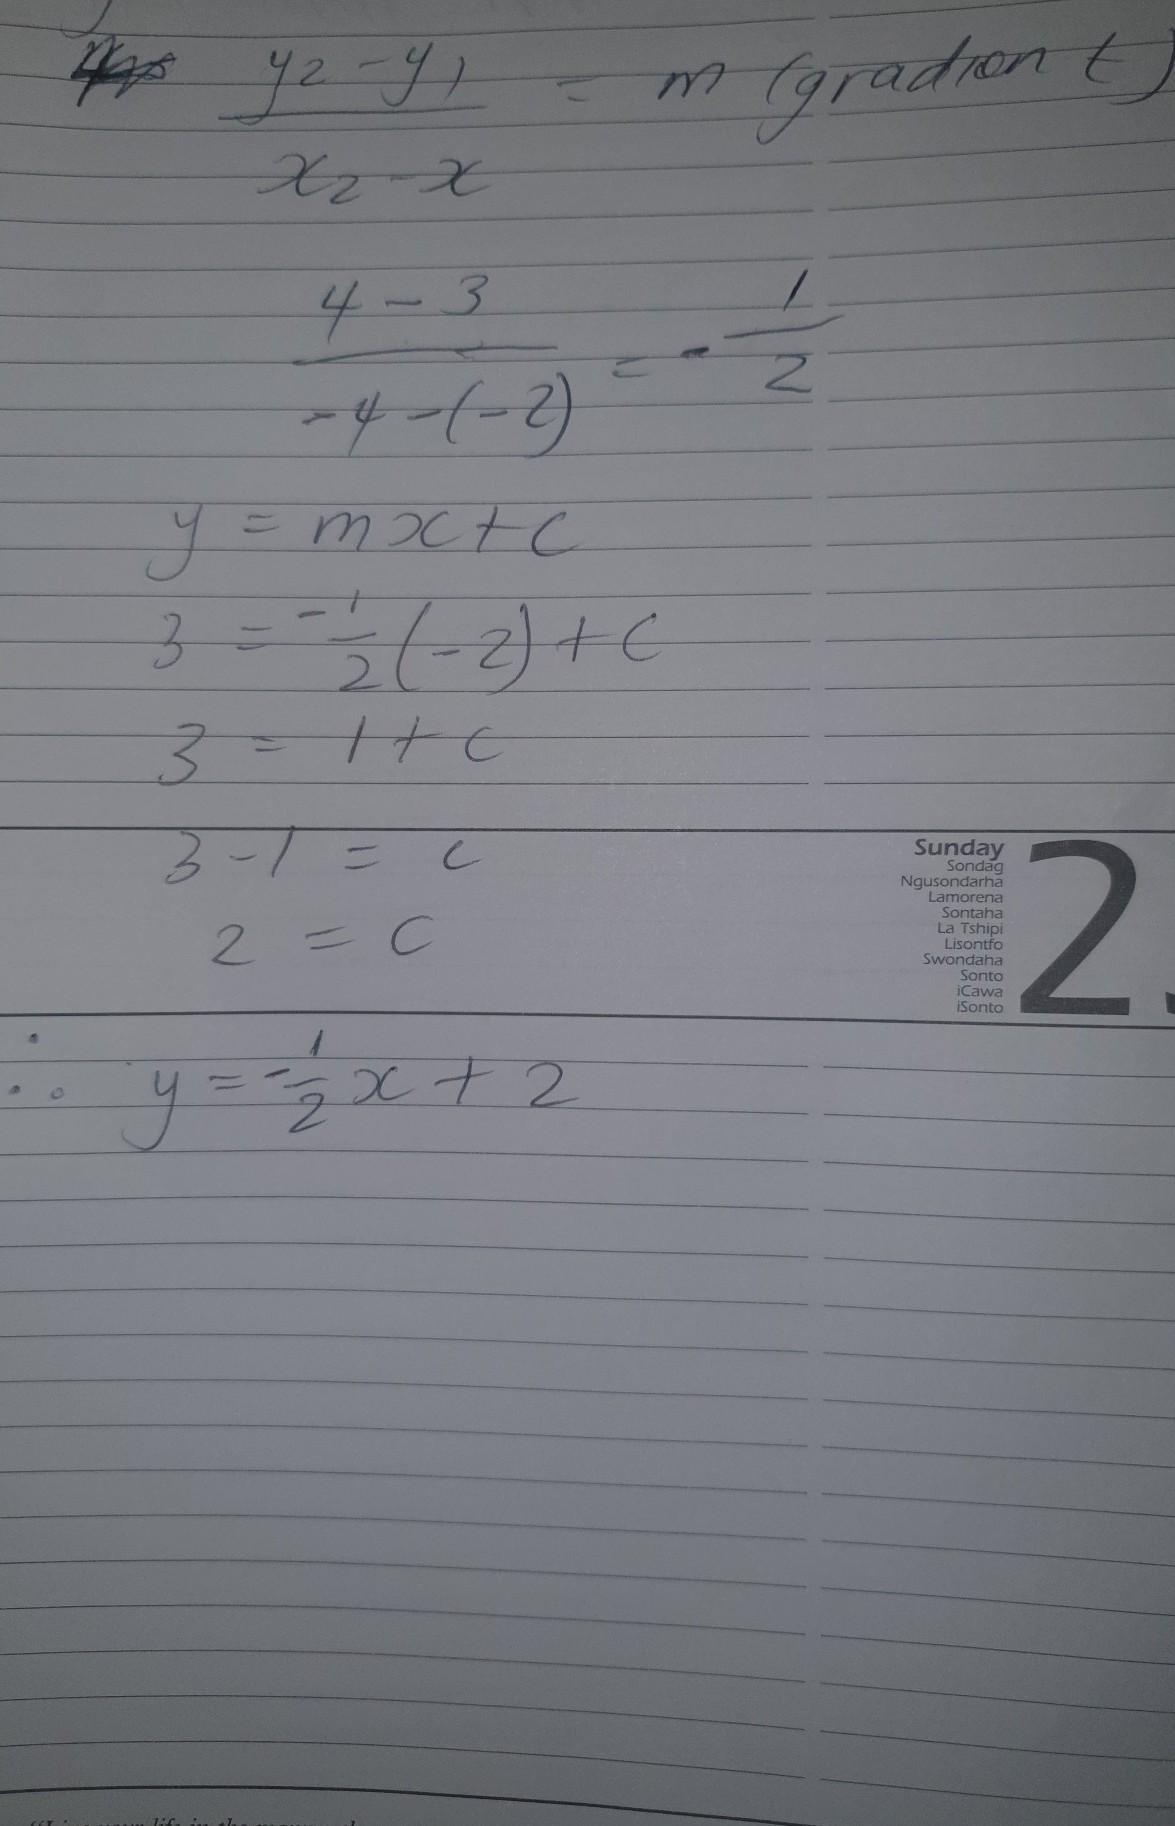 y2 - y1 = m (gradient)
x2 - x
4 - 3 = - 1
-4 - (-2) 2
y = mx + c
3 = -1/2 (-2) + c
3 = 1 + c
3 - 1 = c
2 = c
Sunday
Sondag
Ngusondarha
Lamorena
Sontaha
La Tshipi
Lisontfo
Swondaha
Sonto
iCawa
iSonto
2
∴ y = -1/2 x + 2